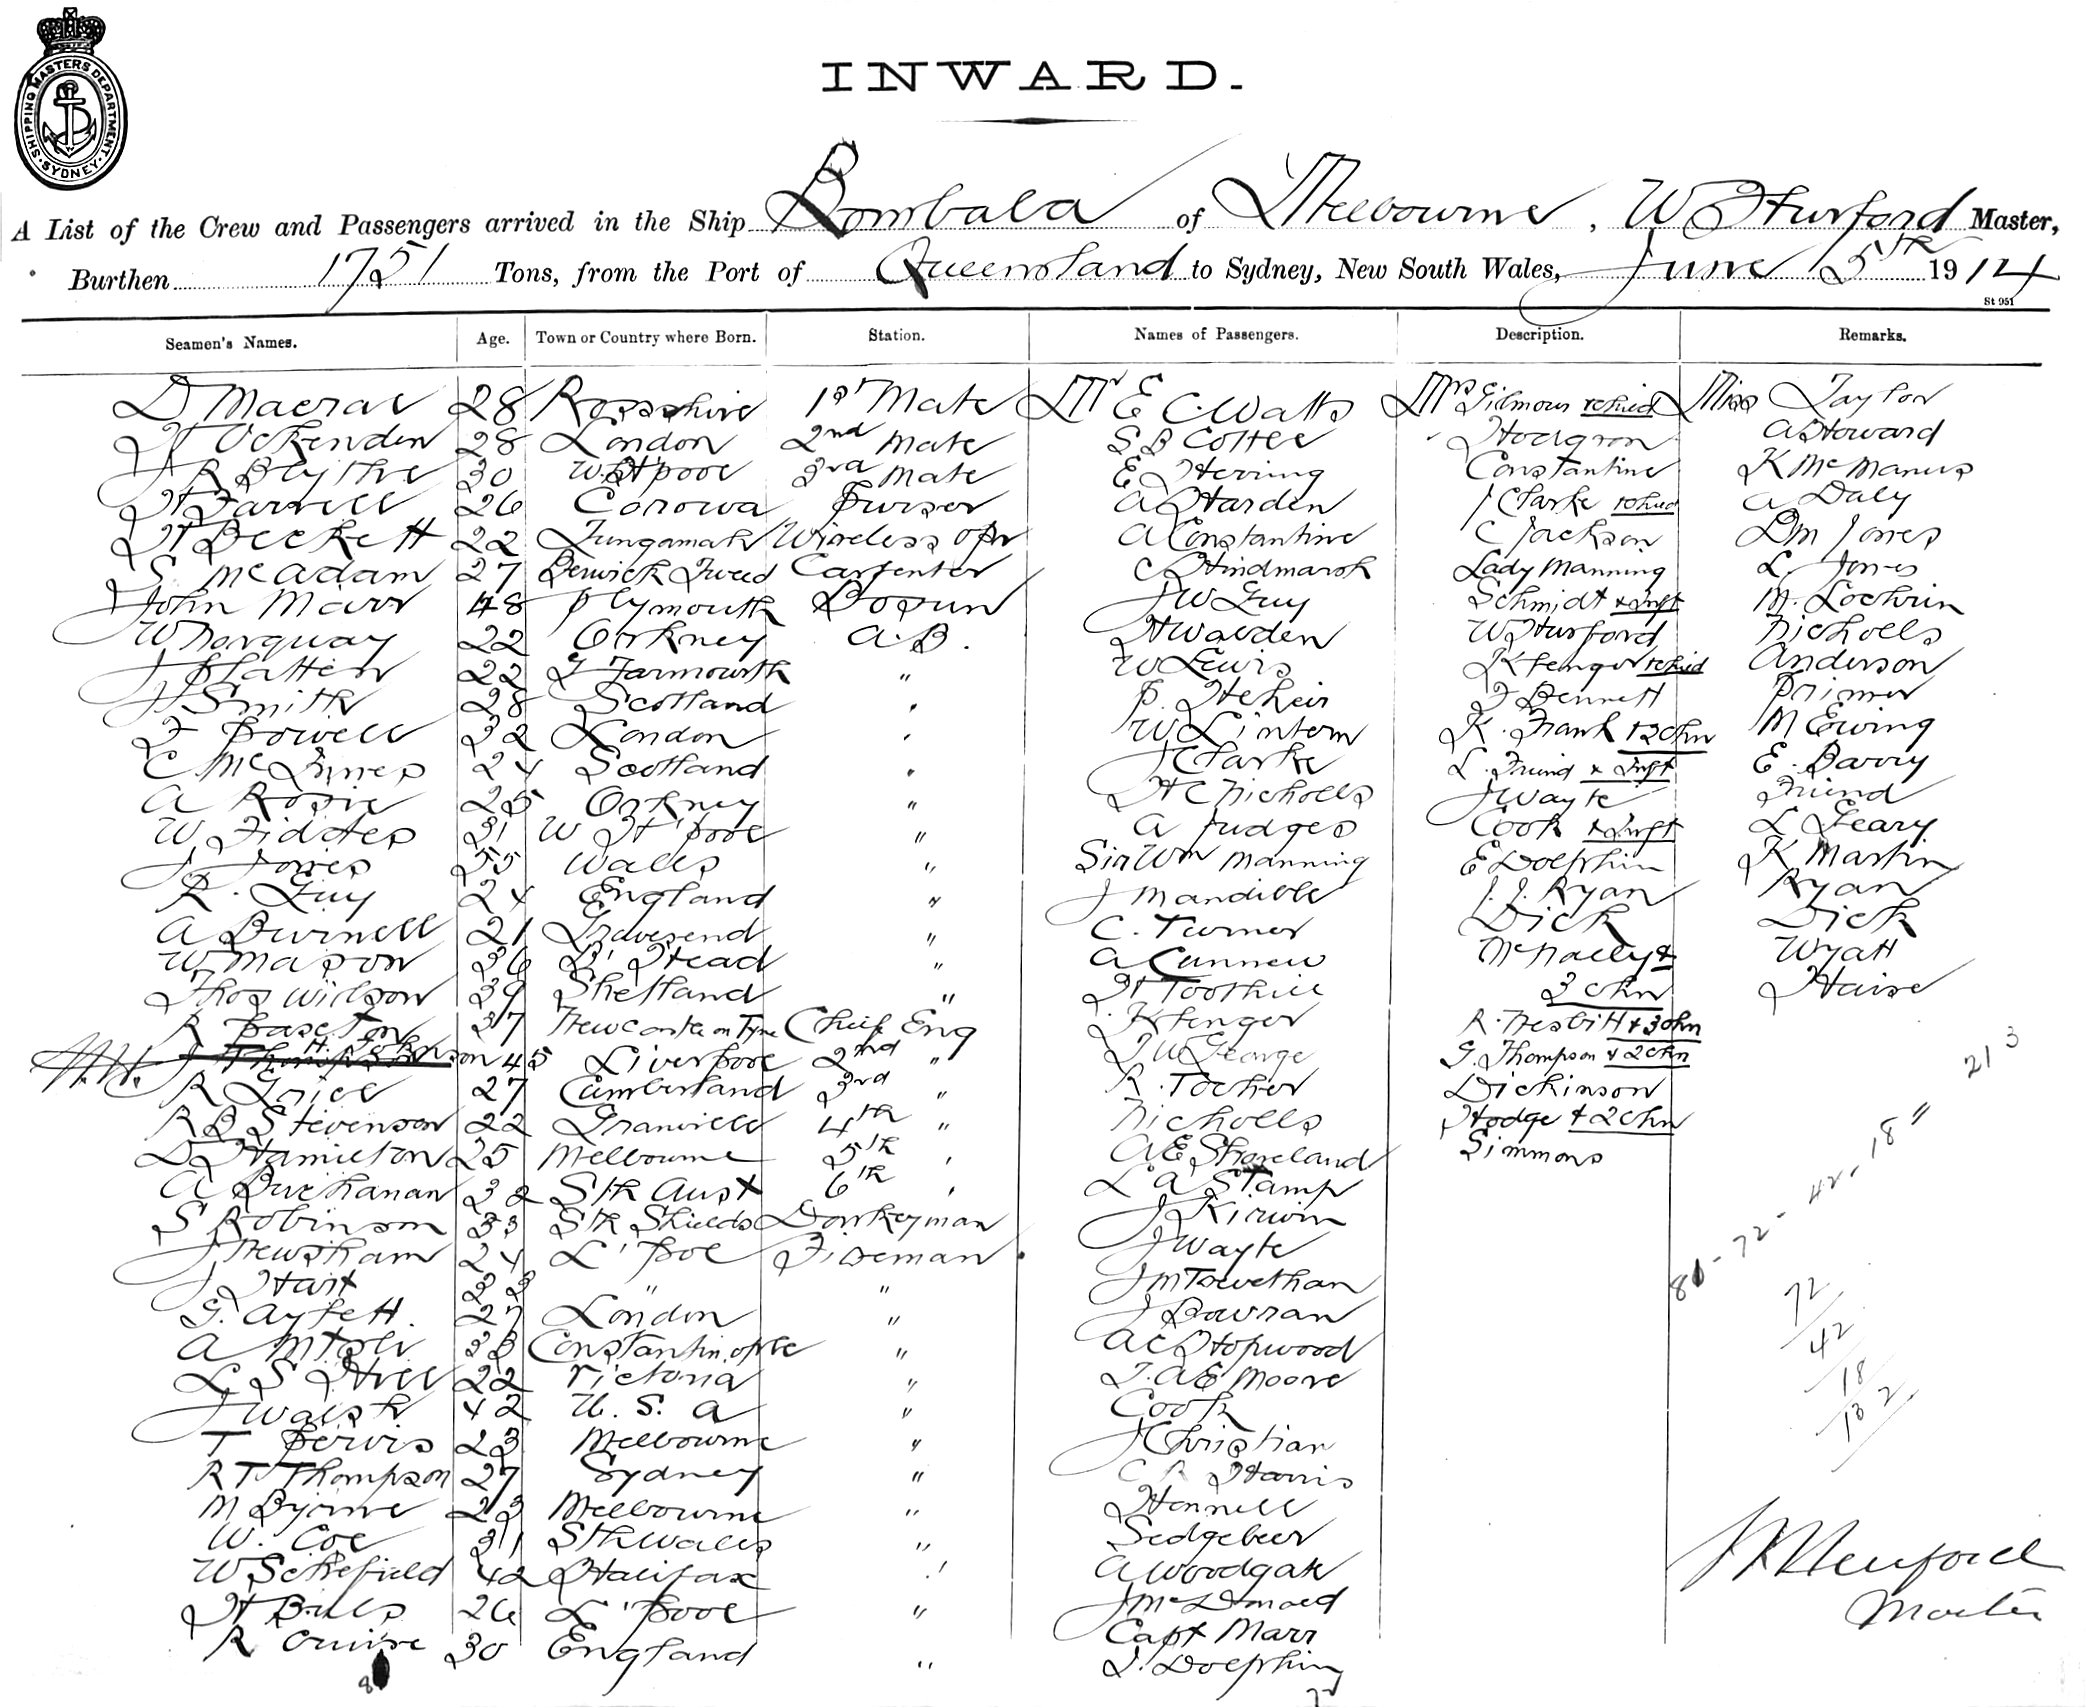 SHIPPING MASTERS DEPARTMENT. SYDNEY.
INWARD.
A List of the Crew and Passengers arrived in the Ship Bombala of Melbourne, W Hurford Master,
Burthen 1751 Tons, from the Port of Queensland to Sydney, New South Wales, June 5th 1914
St 951
Seamen's Names. Age. Town or Country where Born. Station. Names of Passengers. Description. Remarks.
D Macrae 28 Rossshire 1st Mate Mr E C Watts Mrs Gilmour Miss Taylor
H Ockenden 28 London 2nd Mate S B Cottee Hodgson A Howard
J R Blythe 30 W. H'pool 3rd Mate E Herring Constantine K McManus
H Farrell 26 Corowa Purser A Harden J Clarke A Daly
H Beckett 22 Tungamah Wireless opr A Constantine C Jackson D M Jones
S. McAdam 27 Berwick Tweed Carpenter C Hindmarsh Lady Manning L. Jones
John Marr 48 Plymouth Bosun J W Guy Schmidt & Inft M. Lochrin
W Norquay 22 Orkney A.B. H Walden W Hurford Nicholls
J Platten 22 G Yarmouth " W Lewis Klenger Anderson
J Smith 28 Scotland " P. Hehir F Bennett Primer
F Powell 32 London " W Lintern K. Frank + 2 Chn M Ewing
C McInnes 24 Scotland " J Clarke L. Friend & Inft E. Barry
A Rosie 25 Orkney " H C Nicholls J Wayte Friend
W Fiddes 31 W H'pool " A Judges Cook & Inft L Geary
J Jones 55 Wales " Sir Wm Manning E Dolphin K Martin
R. Guy 24 England " J Mandible J. J. Ryan Ryan
A Burnell 21 Gravesend " C. Turner Dick Dick
W Mason 36 B' Head " A Cunnew McNally & Wyatt
Thos Wilson 39 Shetland " H Toothill 3 Chn Haire
R Paseton 37 Newcastle on Tyne Chief Eng Klenger R. Nesbitt + 3 Chn
H. H. J 45 Liverpool 2nd " T W George G. Thompson + 2 Chn
R Grice 27 Cumberland 3rd " R. Tocher Dickinson
R B Stevenson 22 Granville 4th " Nicholls Hodge + 2 Chn
D Hamilton 25 Melbourne 5th " A E Shoreland Simmons
A Buchanan 32 Sth Aust 6th " L A Stamp
S Robinson 33 Sth Shields Donkeyman J Kirwin
J Newsham 24 L'Pool Fireman J Wayte
J Hart 33 " " J M Trevethan
G. Aylett. 27 London " J Bowran
A 33 Constantinople " A C Hopwood
L S Hill 22 Victoria " T. A E Moore
J Walsh 42 U. S. A " Cook
T Pervis 23 Melbourne " J Christian
R T Thompson 27 Sydney " C R Harris
M Byrne 23 Melbourne " Hennell
W. Coe 31 Sth Wales " Sedgebeer
W Schofield 42 Halifax " A Woodgate
H Bills 26 L'pool " J McDonald
R Cruise 30 England " Capt Marr
J. Dolphin
213
80-72-42-18"
72
42
18
132
W Hurford
Master
8
72